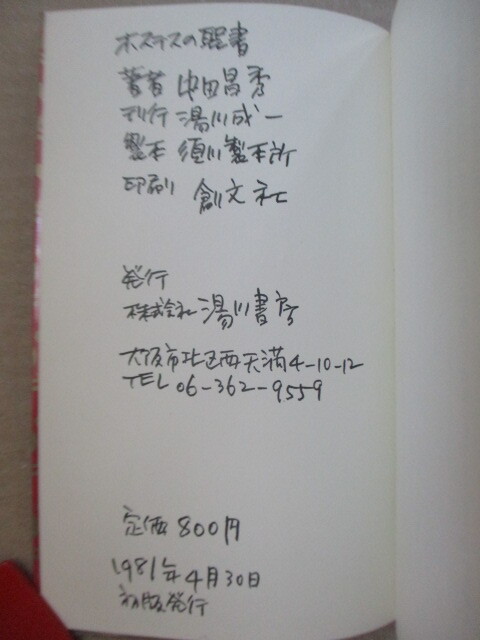 ホステスの聖書
著者 中田昌秀
刊行 湯川成一
製本 須川製本所
印刷 創文社
発行
株式会社湯川書房
大阪市北区西天満4-10-12
TEL 06-362-9559
定価 800円
1981年4月30日
初版発行